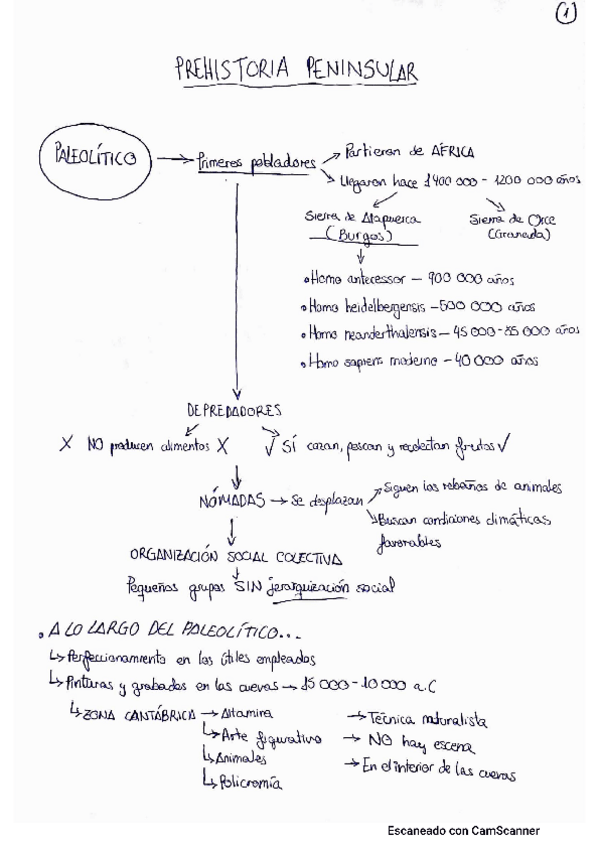 1
PREHISTORIA PENINSULAR
PALEOLÍTICO → Primeros pobladores → Partieron de ÁFRICA
↘ Llegaron hace 1400 000 - 1200 000 años
Sierra de Atapuerca Sierra de Orce
(Burgos) (Granada)
• Homo antecessor — 900 000 años
• Homo heidelbergensis — 500 000 años
• Homo neanderthalensis — 45 000 - 35 000 años
• Homo sapiens moderno — 40 000 años
DEPREDADORES
X NO producen alimentos X √ SÍ cazan, pescan y recolectan frutos √
NÓMADAS → Se desplazan → Siguen los rebaños de animales
↘ Buscan condiciones climáticas
favorables
ORGANIZACIÓN SOCIAL COLECTIVA
Pequeños grupos SIN jerarquización social
• A LO LARGO DEL PALEOLÍTICO...
↳ Perfeccionamiento en los útiles empleados
↳ Pinturas y grabados en las cuevas → 15 000 - 10 000 a.C
↳ ZONA CANTÁBRICA → Altamira → Técnica naturalista
↳ Arte figurativo → NO hay escena
↳ Animales → En el interior de las cuevas
↳ Policromía
Escaneado con CamScanner